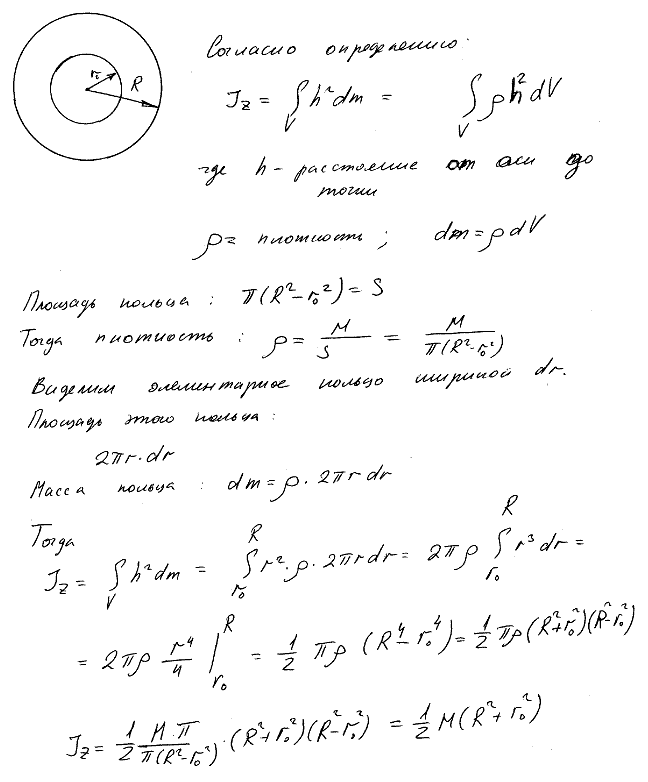 r₀ R
Согласно определению:
J_z = ∫_V h²dm = ∫_V ρh²dV
где h - расстояние от оси до
точки
ρ = плотность ; dm = ρdV
Площадь кольца : π(R²-r₀²) = S
Тогда плотность : ρ = M/S = M/(π(R²-r₀²))
Виделим элементарное кольцо шириной dr.
Площадь этого кольца :
2πr·dr
Масса кольца : dm = ρ · 2πr dr
Тогда
J_z = ∫_V h²dm = ∫_{r₀}^{R} r²·ρ·2πrdr = 2πρ ∫_{r₀}^{R} r³dr =
= 2πρ r⁴/4 |_{r₀}^{R} = 1/2 πρ (R⁴-r₀⁴) = 1/2 πρ(R²+r₀²)(R²-r₀²)
J_z = 1/2 M·π/(π(R²-r₀²)) · (R²+r₀²)(R²-r₀²) = 1/2 M(R²+r₀²)